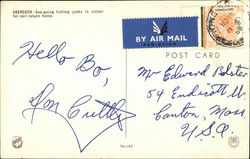 ABERDEEN - Sea-going fishing junks in colourful sail return home.
BY AIR MAIL
PAR AVION
POST CARD
Hello Bo,
Mr Edward
54 Endicott St
Canton, Mass
U.S.A.